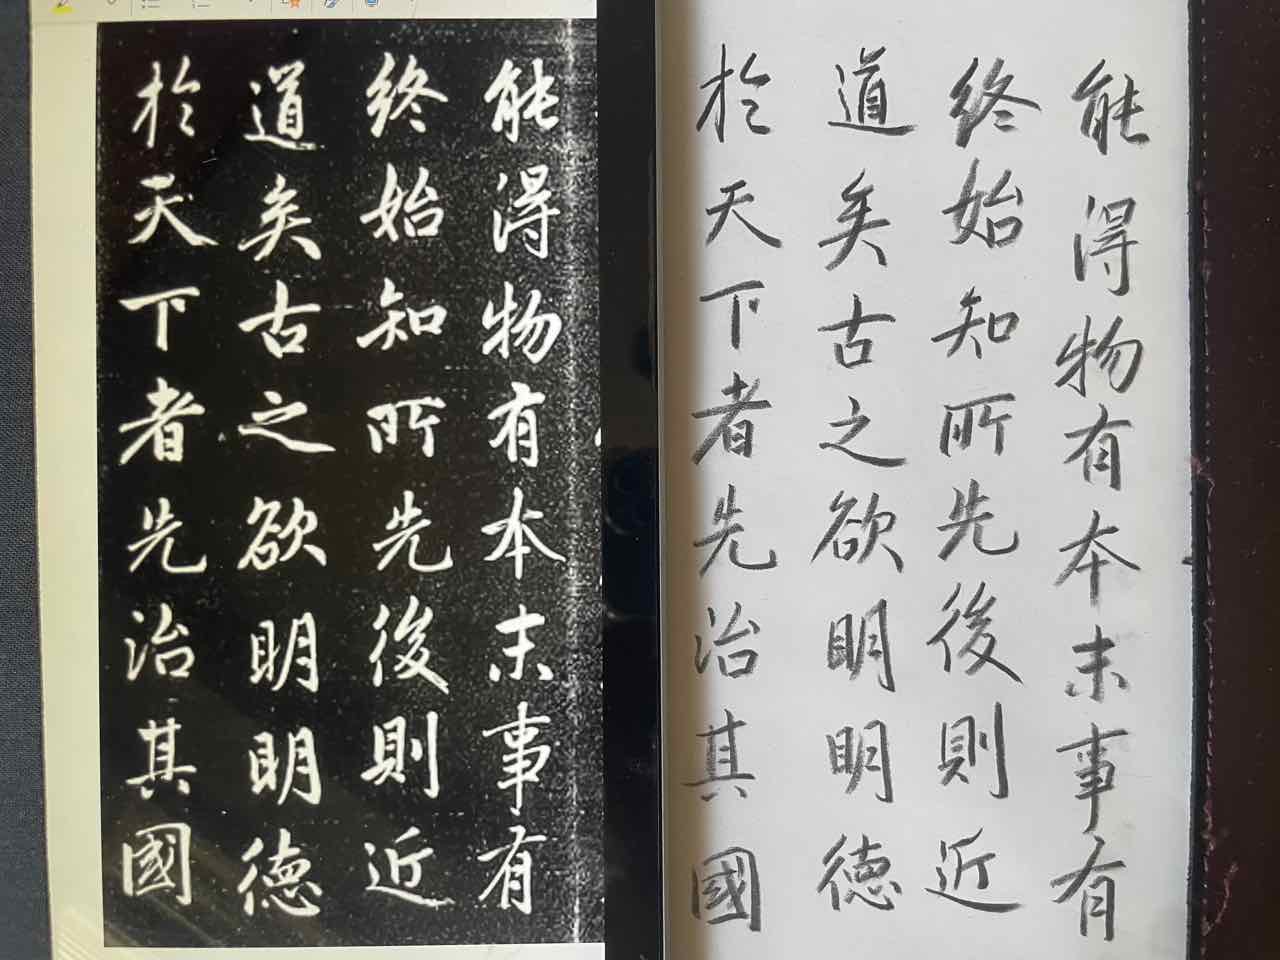 能得物有本末事有
終始知所先後則近
道矣古之欲明明德
於天下者先治其國
能得物有本末事有
終始知所先後則近
道矣古之欲明明德
於天下者先治其國